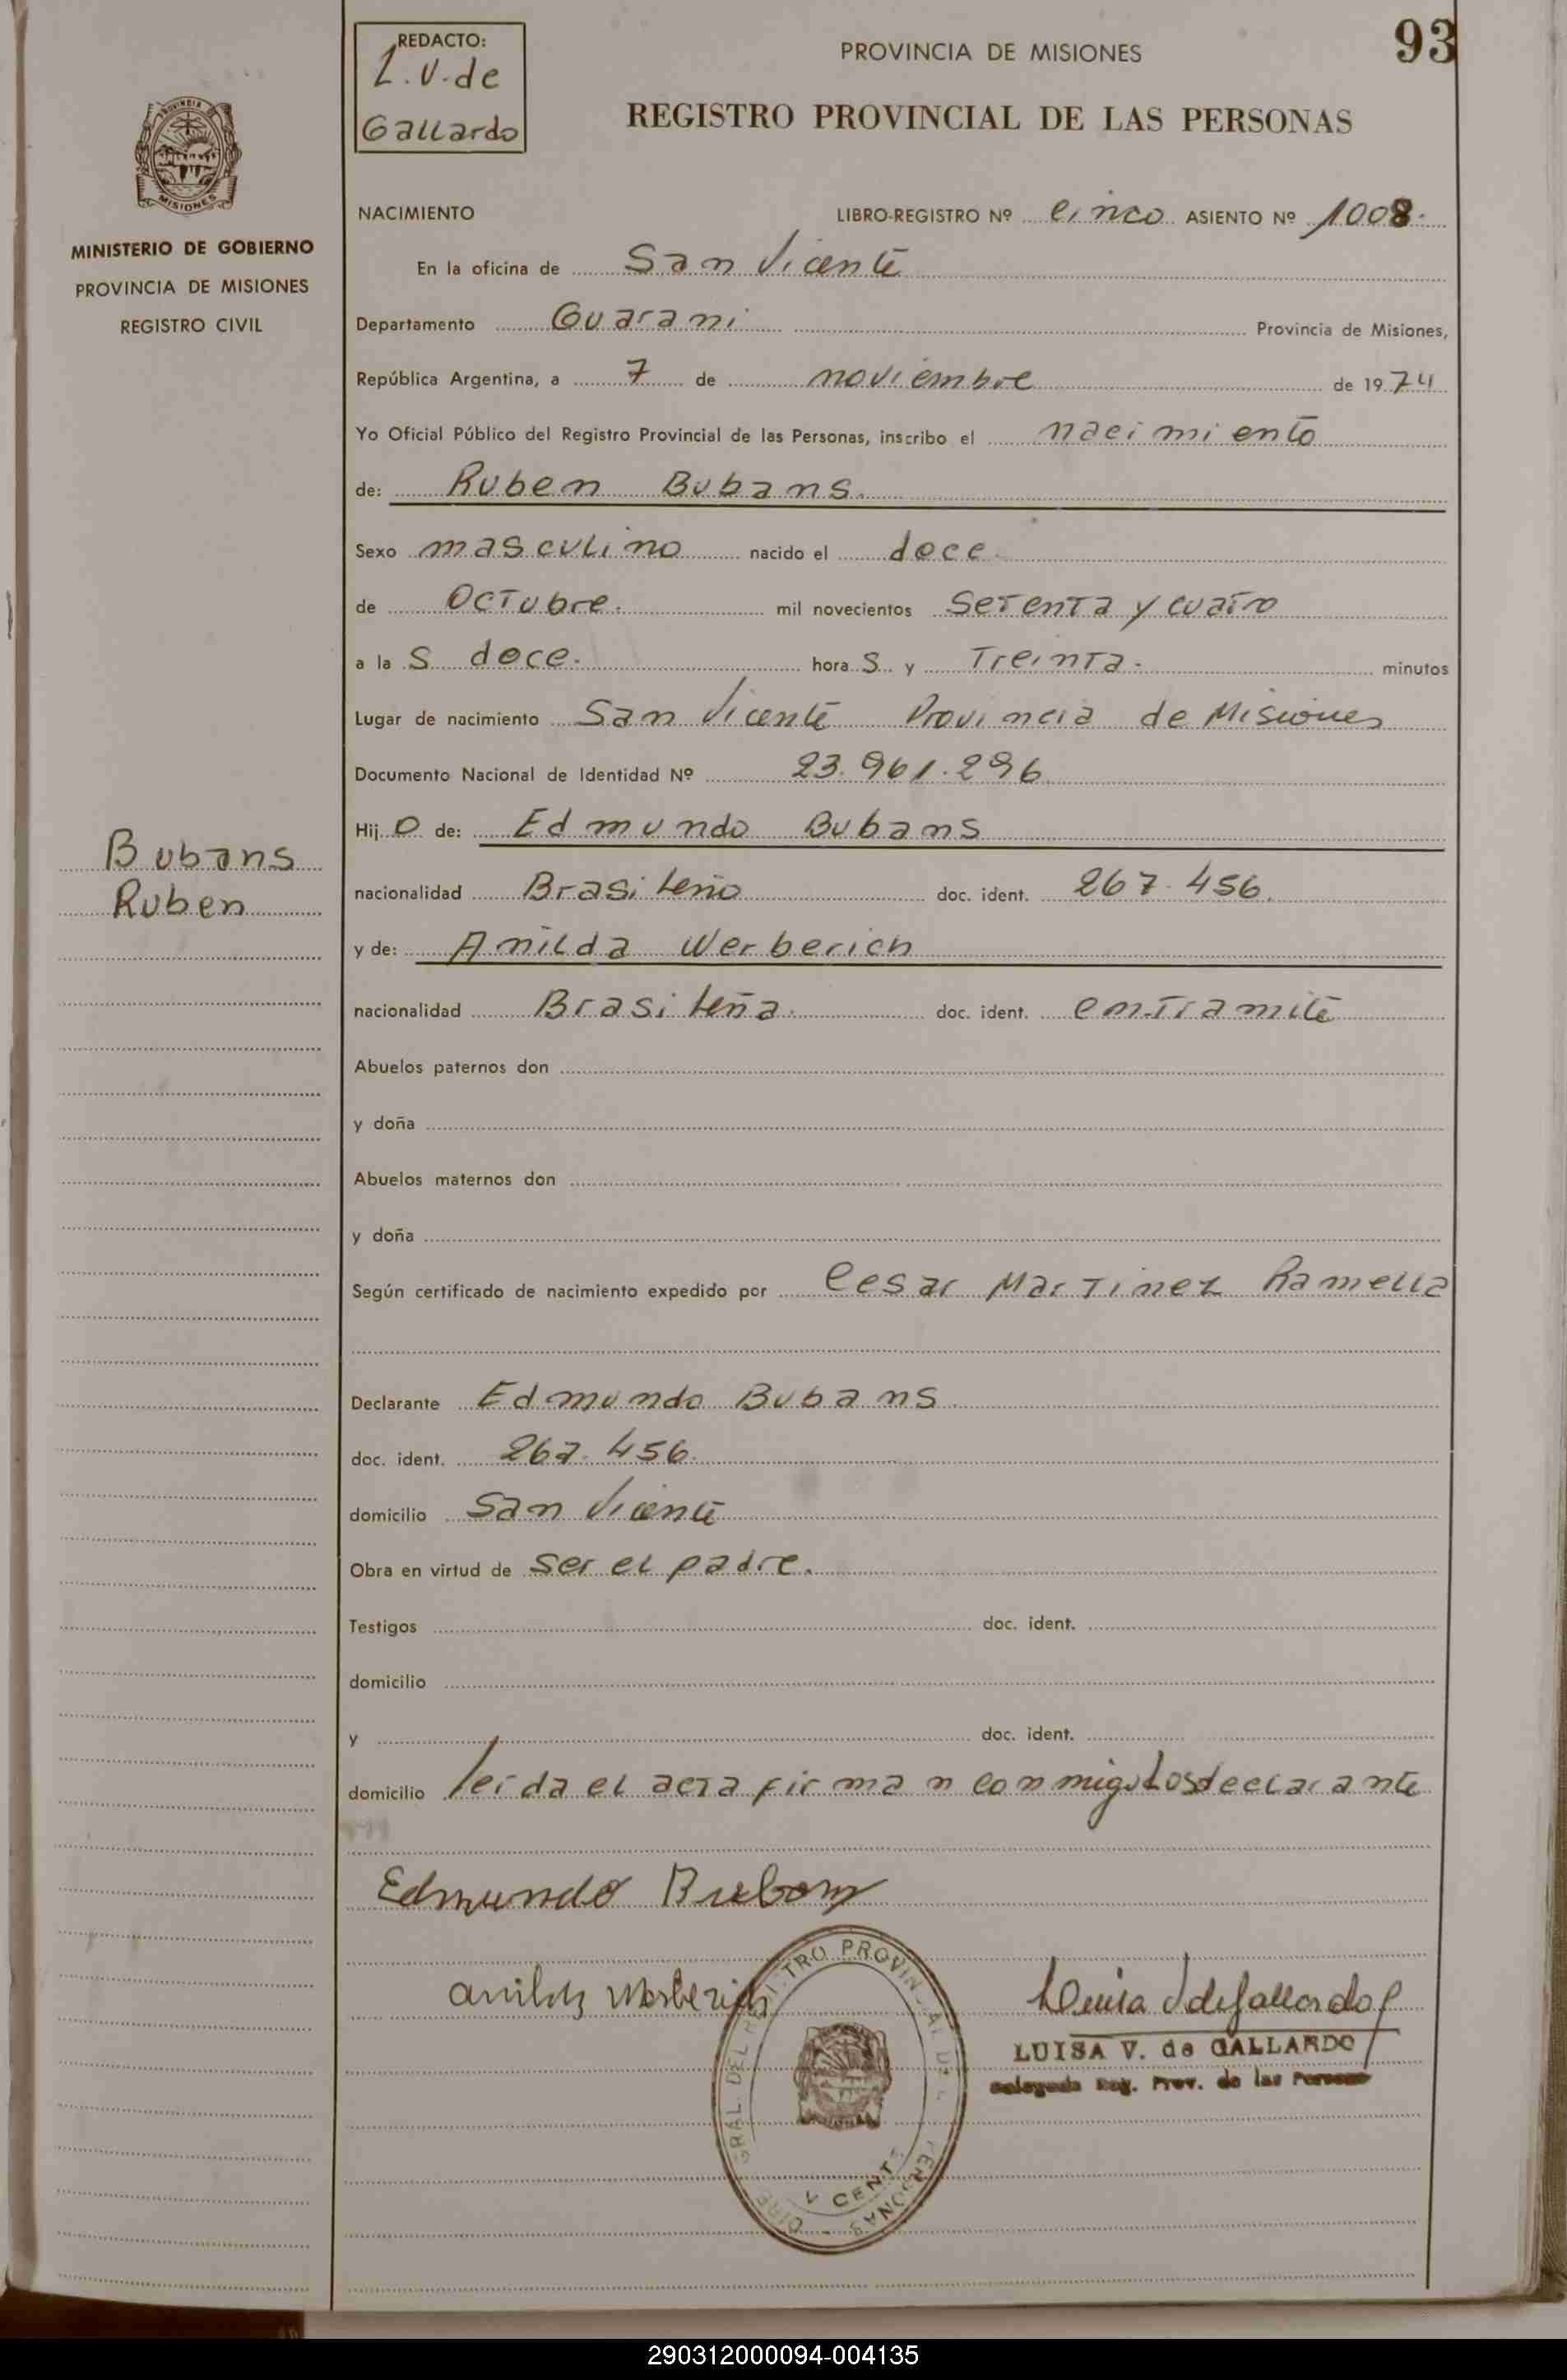 93
REDACTO:
L.V. de
Gallardo
PROVINCIA DE MISIONES
REGISTRO PROVINCIAL DE LAS PERSONAS
MINISTERIO DE GOBIERNO
PROVINCIA DE MISIONES
REGISTRO CIVIL
NACIMIENTO LIBRO-REGISTRO Nº cinco ASIENTO Nº 1008.
En la oficina de San Vicente
Departamento Guarani Provincia de Misiones,
República Argentina, a 7 de noviembre de 1974
Yo Oficial Público del Registro Provincial de las Personas, inscribo el nacimiento
de: Ruben Bubans.
Sexo masculino nacido el doce.
de Octubre. mil novecientos Setenta y cuatro
a la S doce. hora S y Treinta. minutos
Lugar de nacimiento San Vicente Provincia de Misiones
Documento Nacional de Identidad Nº 23.961.296
Hij O de: Edmundo Bubans
Bubans
Ruben
nacionalidad Brasileño doc. ident. 267.456.
y de: Anilda Werberich
nacionalidad Brasileña. doc. ident. en tramite
Abuelos paternos don
y doña
Abuelos maternos don
y doña
Según certificado de nacimiento expedido por Cesar Martinez Ramella
Declarante Edmundo Bubans
doc. ident. 267.456.
domicilio San Vicente
Obra en virtud de ser el padre.
Testigos doc. ident.
domicilio
y doc. ident.
domicilio leida el acta firman conmigo Los declarante
Edmundo Bubans
Anilda Werberich
Luisa V de Gallardo
LUISA V. de GALLARDO
Delegada Reg. Prov. de las Personas
290312000094-004135